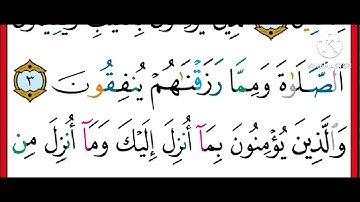 الصَّلَوٰةَ وَمِمَّا رَزَقْنَٰهُمْ يُنفِقُونَ ٣
وَٱلَّذِينَ يُؤْمِنُونَ بِمَآ أُنزِلَ إِلَيْكَ وَمَآ أُنزِلَ مِن